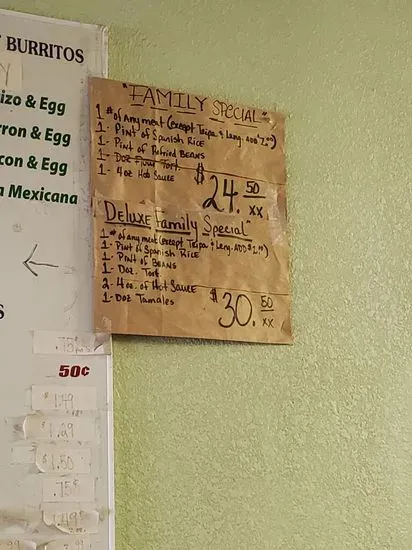 BURRITOS
izo & Egg
rron & Egg
con & Egg
a Mexicana
"FAMILY SPECIAL"
1 # of Any meat (except Tripa & Leng. ADD $2.00)
1- Pint of Spanish Rice
1- Pint of Refried Beans
1- Doz Flour Tort.
1- 4oz Hot Sauce
$24.50/xx
"Deluxe Family Special"
1 # of any meat (except Tripa & Leng. ADD $2.00)
1- Pint of Spanish Rice
1- Pint of Beans
1- Doz. Tort.
2- 4oz. of Hot Sauce
1- Doz Tamales
$30.50/xx
.75
50¢
$1.49
$1.29
$1.50
.75¢
1.49